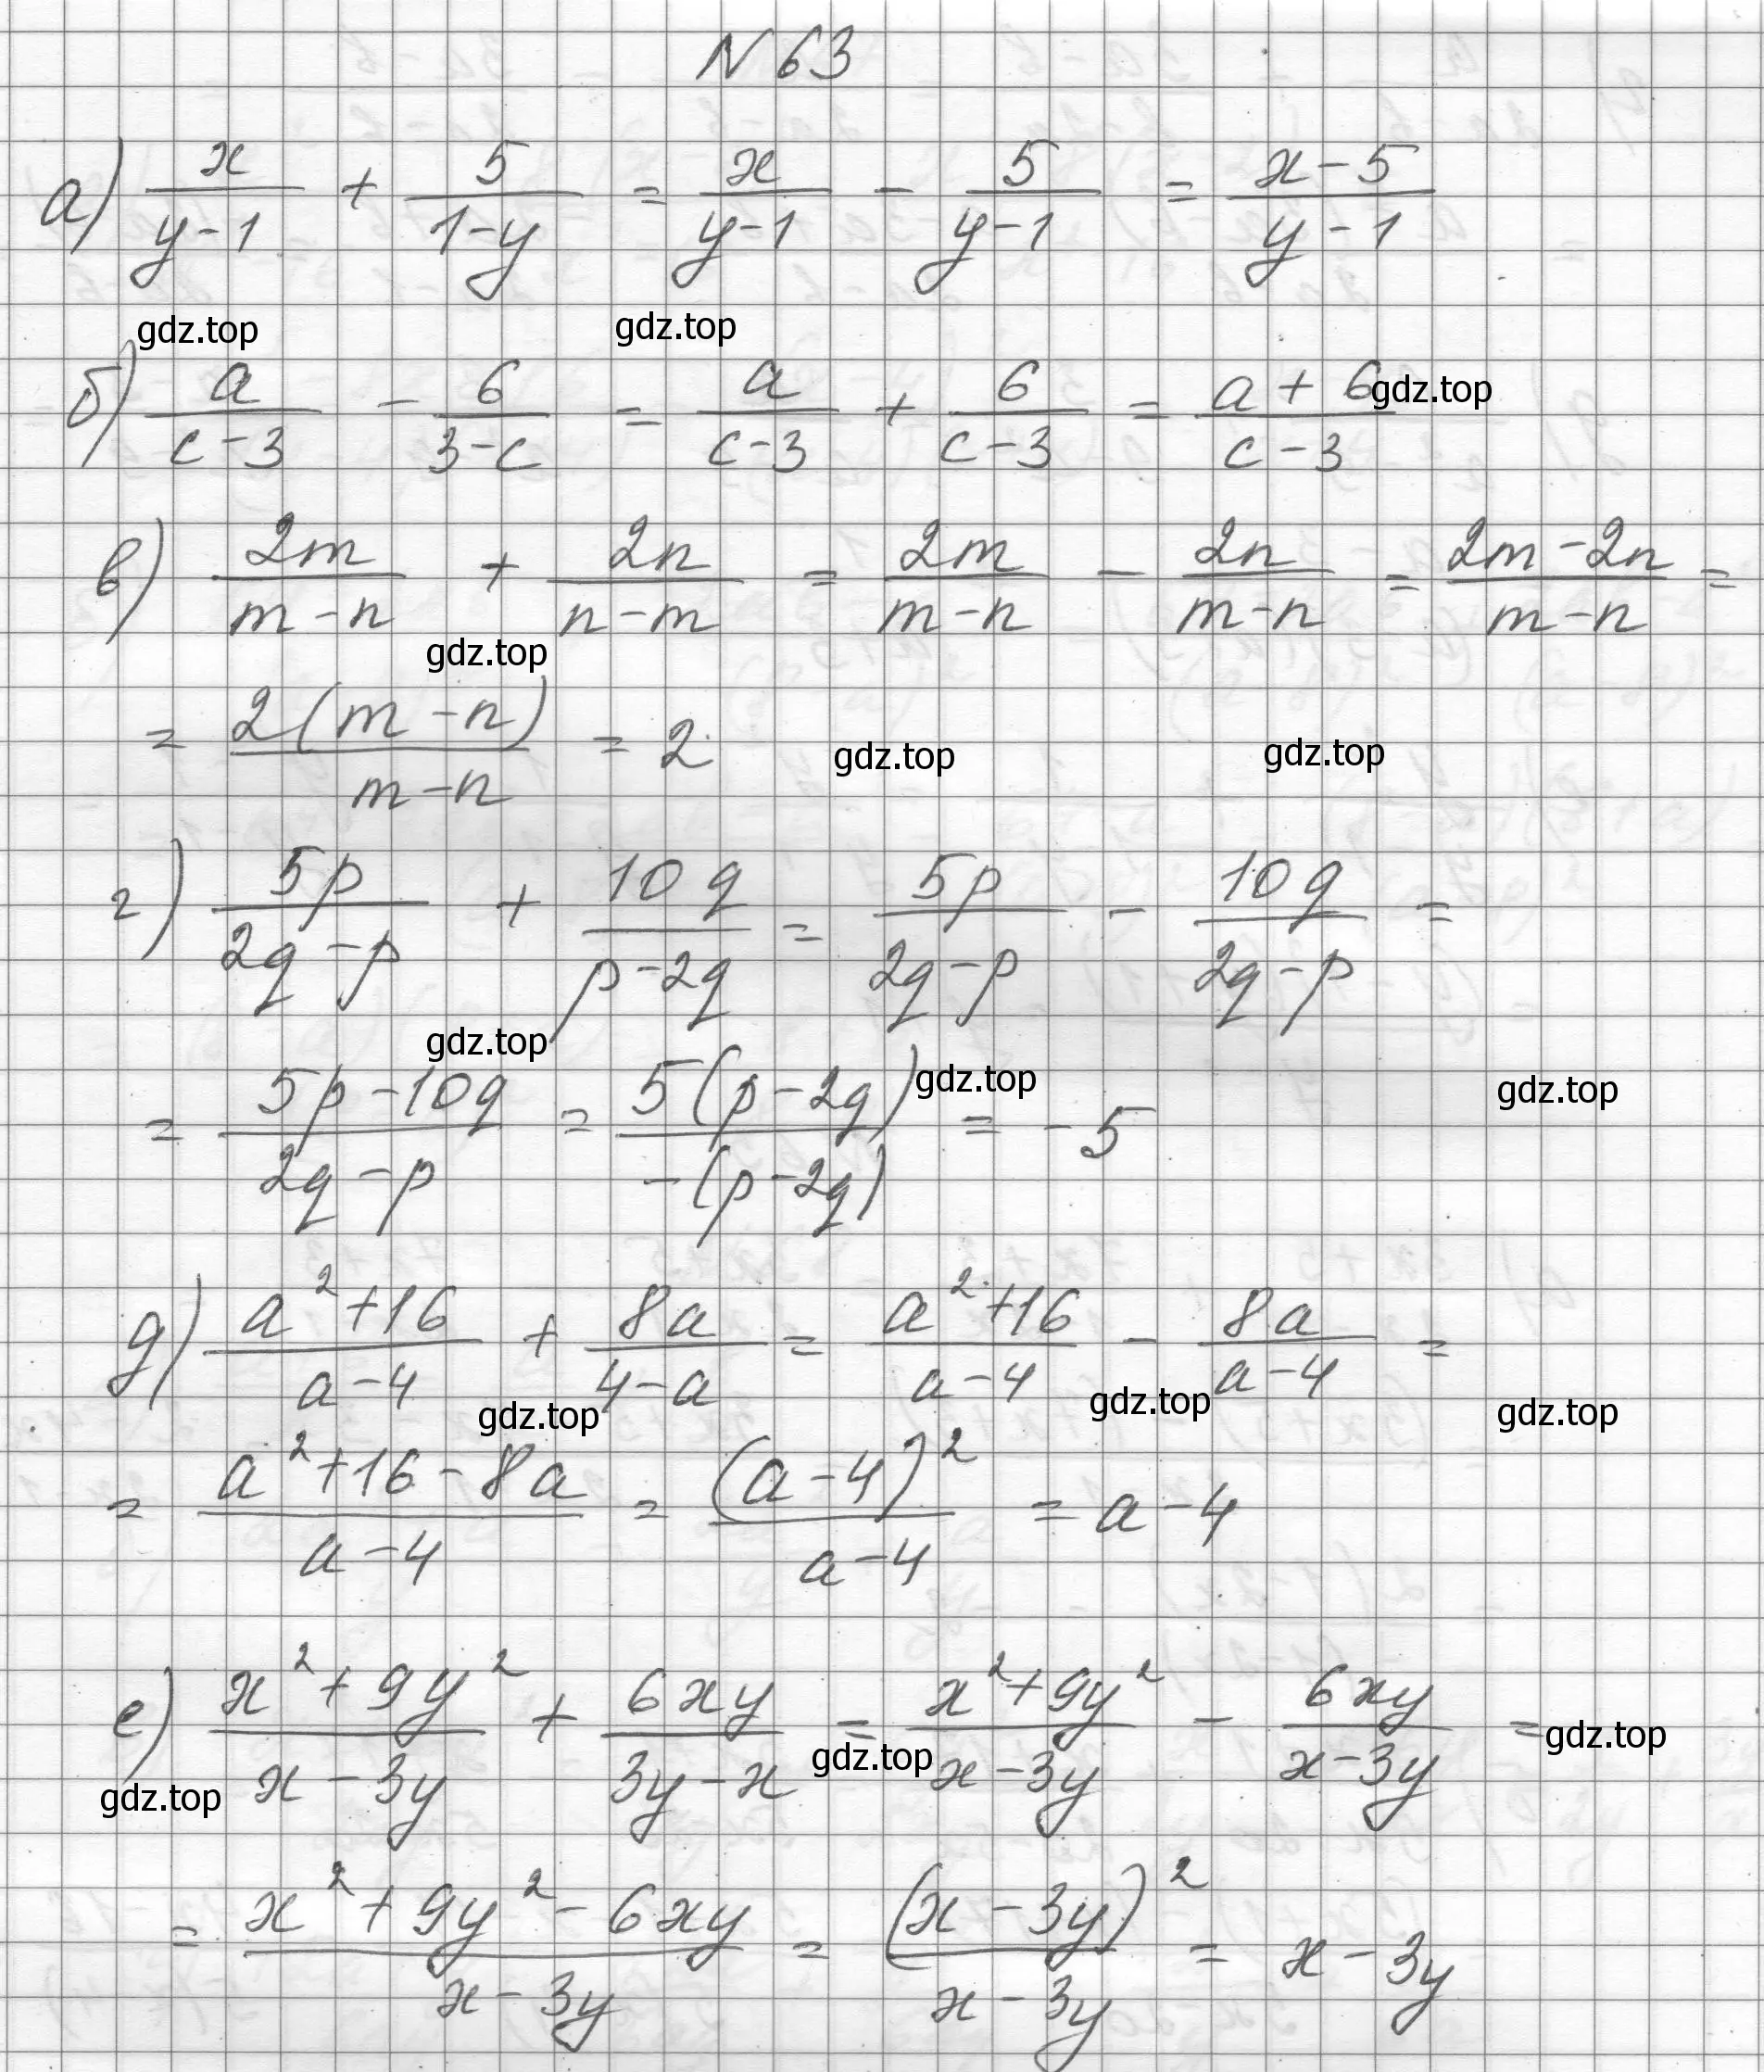 N 63
а) x/(y-1) + 5/(1-y) = x/(y-1) - 5/(y-1) = (x-5)/(y-1)
gdz.top gdz.top
б) a/(c-3) - 6/(3-c) = a/(c-3) + 6/(c-3) = (a+6)/(c-3) gdz.top
в) 2m/(m-n) + 2n/(n-m) = 2m/(m-n) - 2n/(m-n) = (2m-2n)/(m-n) =
gdz.top
= 2(m-n)/(m-n) = 2 gdz.top gdz.top
г) 5p/(2q-p) + 10q/(p-2q) = 5p/(2q-p) - 10q/(2q-p) =
gdz.top
= (5p-10q)/(2q-p) = 5(p-2q)/(-(p-2q)) = -5 gdz.top gdz.top
д) (a²+16)/(a-4) + 8a/(4-a) = (a²+16)/(a-4) - 8a/(a-4) =
gdz.top gdz.top gdz.top
= (a²+16-8a)/(a-4) = (a-4)²/(a-4) = a-4
е) (x²+9y²)/(x-3y) + 6xy/(3y-x) = (x²+9y²)/(x-3y) - 6xy/(x-3y) = gdz.top
gdz.top gdz.top
= (x²+9y²-6xy)/(x-3y) = (x-3y)²/(x-3y) = x-3y